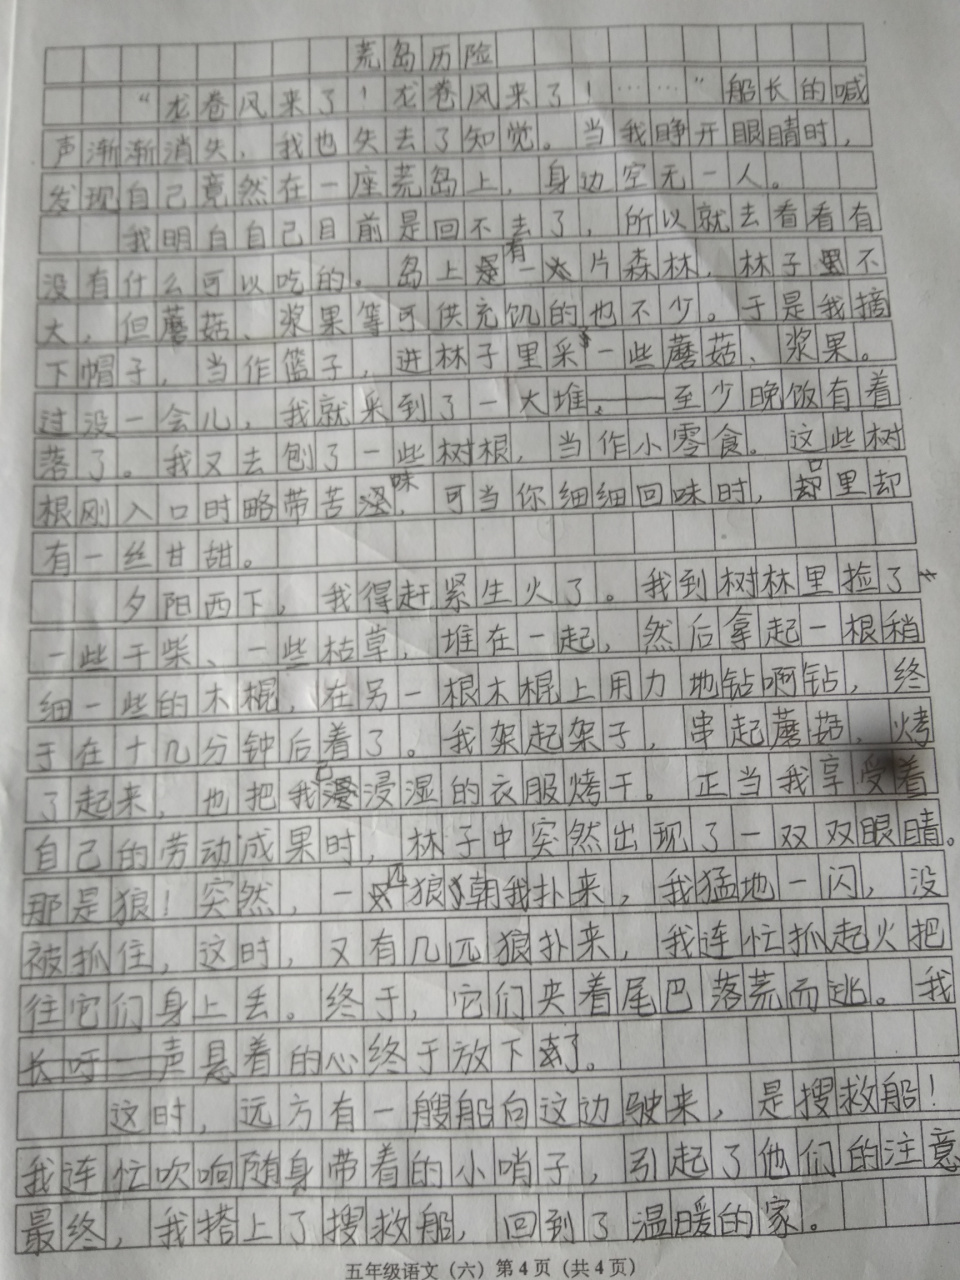 荒岛历险
“龙卷风来了！龙卷风来了！……”船长的喊
声渐渐消失，我也失去了知觉。当我睁开眼睛时，
发现自己竟然在一座荒岛上，身边空无一人。
我明白自己目前是回不去了，所以就去看看有
没有什么可以吃的。岛上有一片森林，林子不
大，但蘑菇、浆果等可供充饥的也不少。于是我摘
下帽子，当作篮子，进林子里采一些蘑菇、浆果。
过没一会儿，我就采到了一大堆。——至少晚饭有着
落了。我又去刨了一些树根，当作小零食。这些树
根刚入口时略带苦味，可当你细细回味时，口里却
有一丝甘甜。
夕阳西下，我得赶紧生火了。我到树林里捡了
一些干柴、一些枯草，堆在一起，然后拿起一根稍
细一些的木棍，在另一根木棍上用力地钻啊钻，终
于在十几分钟后着了。我架起架子，串起蘑菇，烤
了起来，也把我已浸湿的衣服烤干。正当我享受着
自己的劳动成果时，林子中突然出现了一双双眼睛。
那是狼！突然，一匹狼朝我扑来，我猛地一闪，没
被抓住，这时，又有几匹狼扑来，我连忙抓起火把
往它们身上丢。终于，它们夹着尾巴落荒而逃。我
长吁一声悬着的心终于放下了。
这时，远方有一艘船向这边驶来，是搜救船！
我连忙吹响随身带着的小哨子，引起了他们的注意
最终，我搭上了搜救船，回到了温暖的家。
五年级语文（六）第4页（共4页）